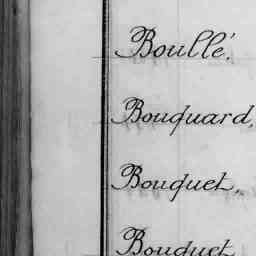 Boullé.
Bouquard,
Bouquet,
Bouquet